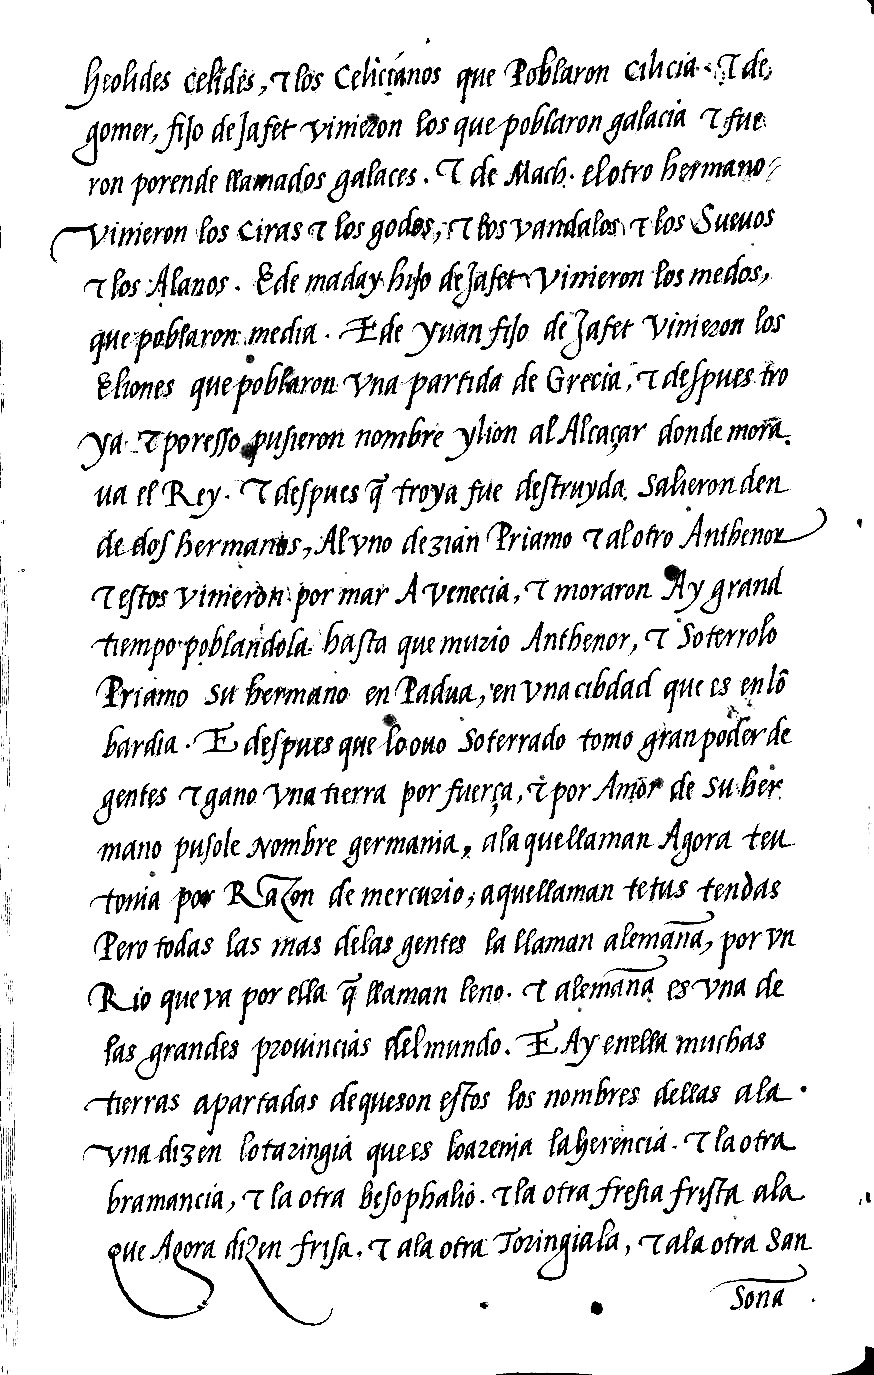 heolides celides, τ los Celicianos que Poblaron cilicia. τ de
gomer, fijo de Jafet vinieron los que poblaron galacia τ fue
ron porende llamados galaces. τ de Mach. el otro hermano
vinieron los Ciras τ los godos, τ los vandalos τ los Sueuos
τ los Alanos. E de maday hijo de Jafet vinieron los medos,
que poblaron media. E de yuan fijo de Jafet vinieron los
Eliones que poblaron vna partida de Grecia, τ despues tro
ya τ poresso pusieron nombre ylion al Alcaçar donde mora
ua el Rey. τ despues q̃ troya fue destruyda salieron den
de dos hermanos, Al vno dezian Priamo τ al otro Anthenor
τ estos vinieron por mar A venecia, τ moraron Ay grand
tiempo poblandola hasta que murio Anthenor, τ Soterrolo
Priamo su hermano en Padua, en vna cibdad que es en lõ
bardia. E despues que lo ouo Soterrado tomo gran poder de
gentes τ gano vna tierra por fuerça, τ por Amor de su her
mano pusole Nombre germania, ala que llaman Agora teu
tonia por Razon de mercurio, a que llaman tetus tendas
Pero todas las mas delas gentes la llaman alemaña, por vn
Rio que va por ella q̃ llaman leno. τ alemaña es vna de
las grandes prouincias del mundo. E Ay en ella muchas
tierras apartadas de que son estos los nombres dellas ala
vna dizen lotaringia que es loarenia la herencia. τ la otra
bramancia, τ la otra besophalio. τ la otra fresia frista ala
que Agora dizen frisa. τ ala otra Toringiala, τ ala otra San
Soña